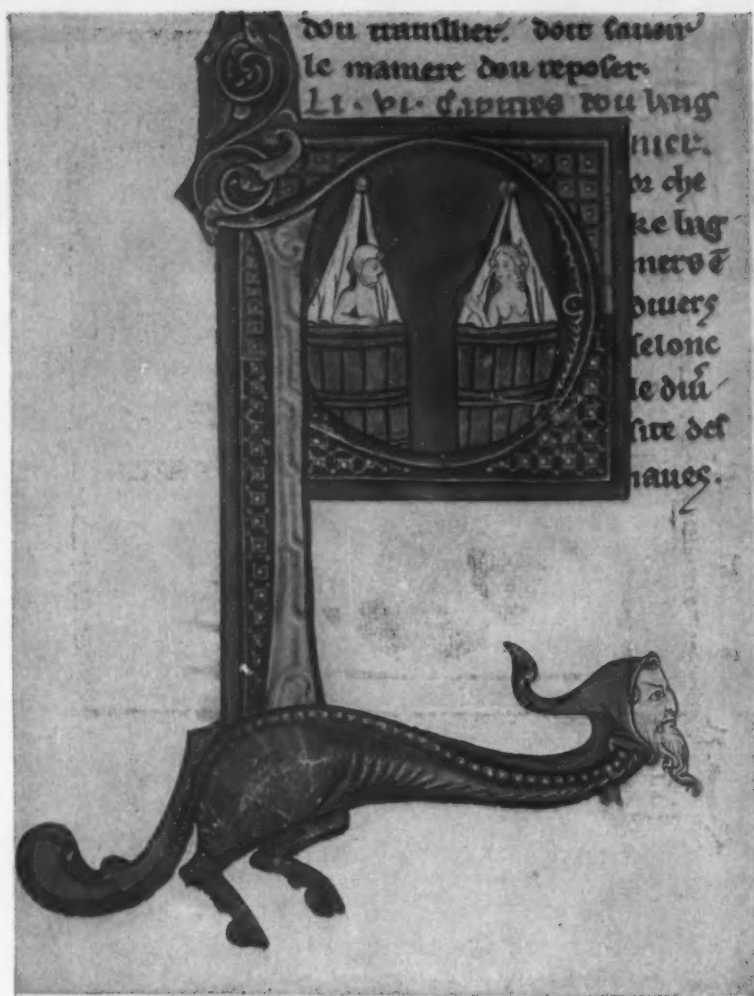 dou trauillier. doit sauoir
le maniere dou reposer.
Li · vi · Capitres dou baig
nier.
or che
ke baig
niers ē
diuers
selonc
le diu᾽
site des
iaues.